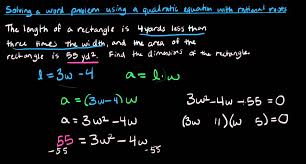 Solving a word problem using a quadratic equation with rational roots
The length of a rectangle is 4 yards less than
three times the width, and the area of the
rectangle is 55 yd². Find the dimensions of the rectangle.
l = 3w - 4 a = l · w
a = (3w-4) w 3w² - 4w - 55 = 0
a = 3w² - 4w (3w 11)(w 5) = 0
55 = 3w² - 4w
-55 -55